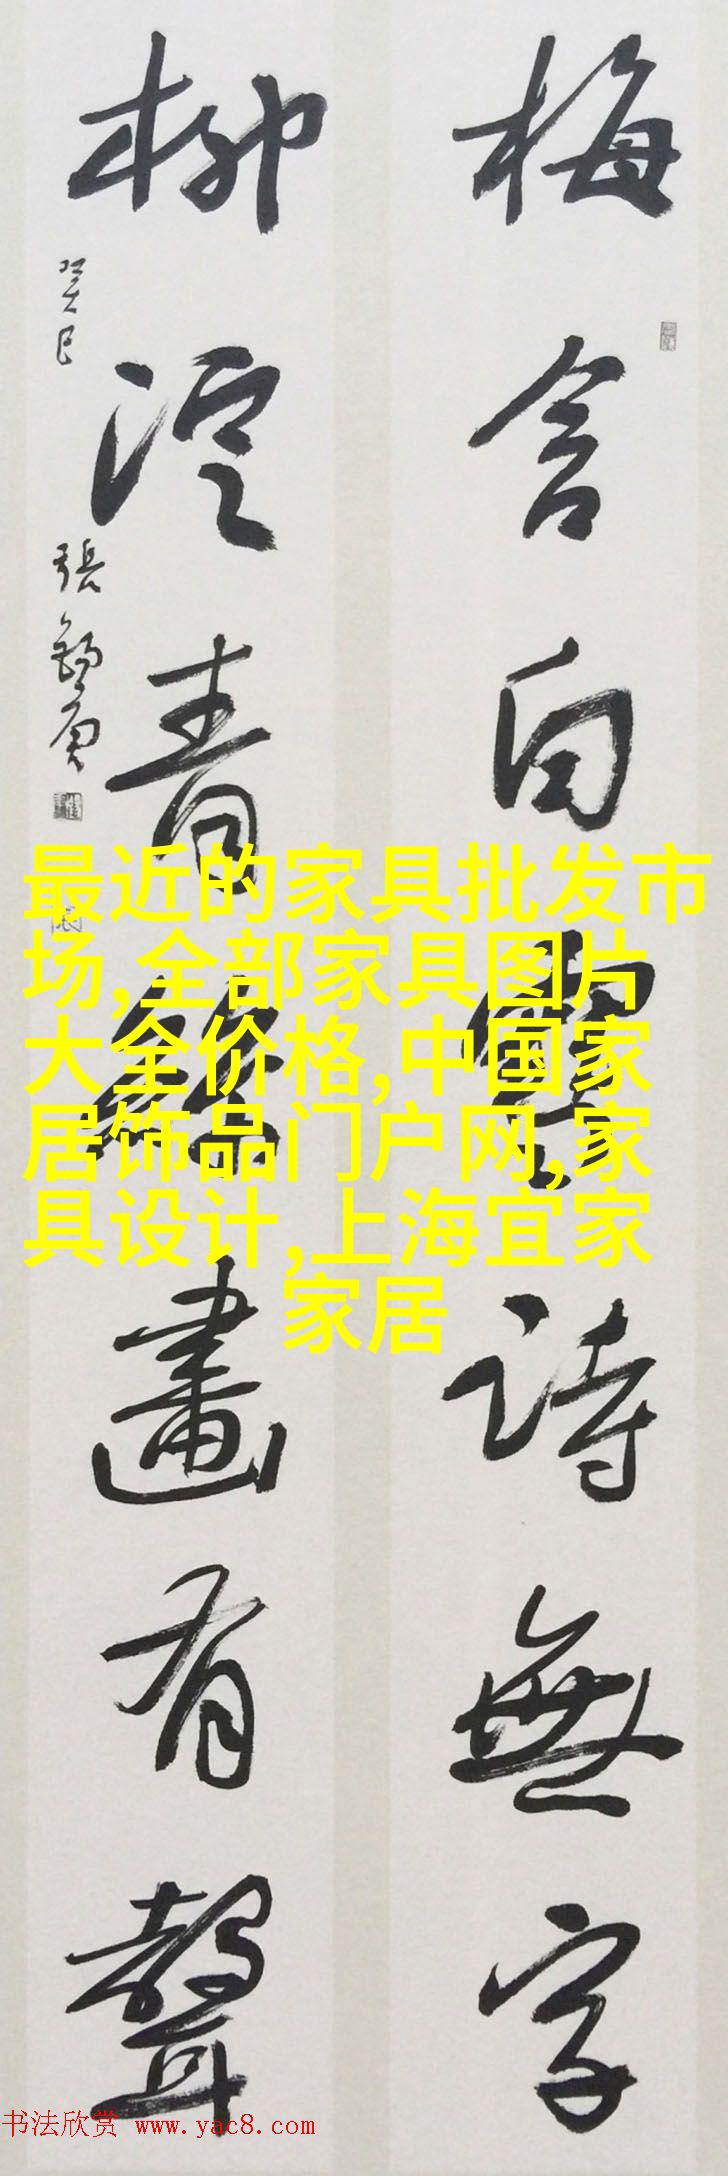 梅含白詩無字
柳淀青畫有聲
癸巳 張
最近的家具批发市
场,全部家具图片
大全价格,中国家
居饰品门户网,家
具设计,上海宜家
家居
书法欣赏 www.yac8.com